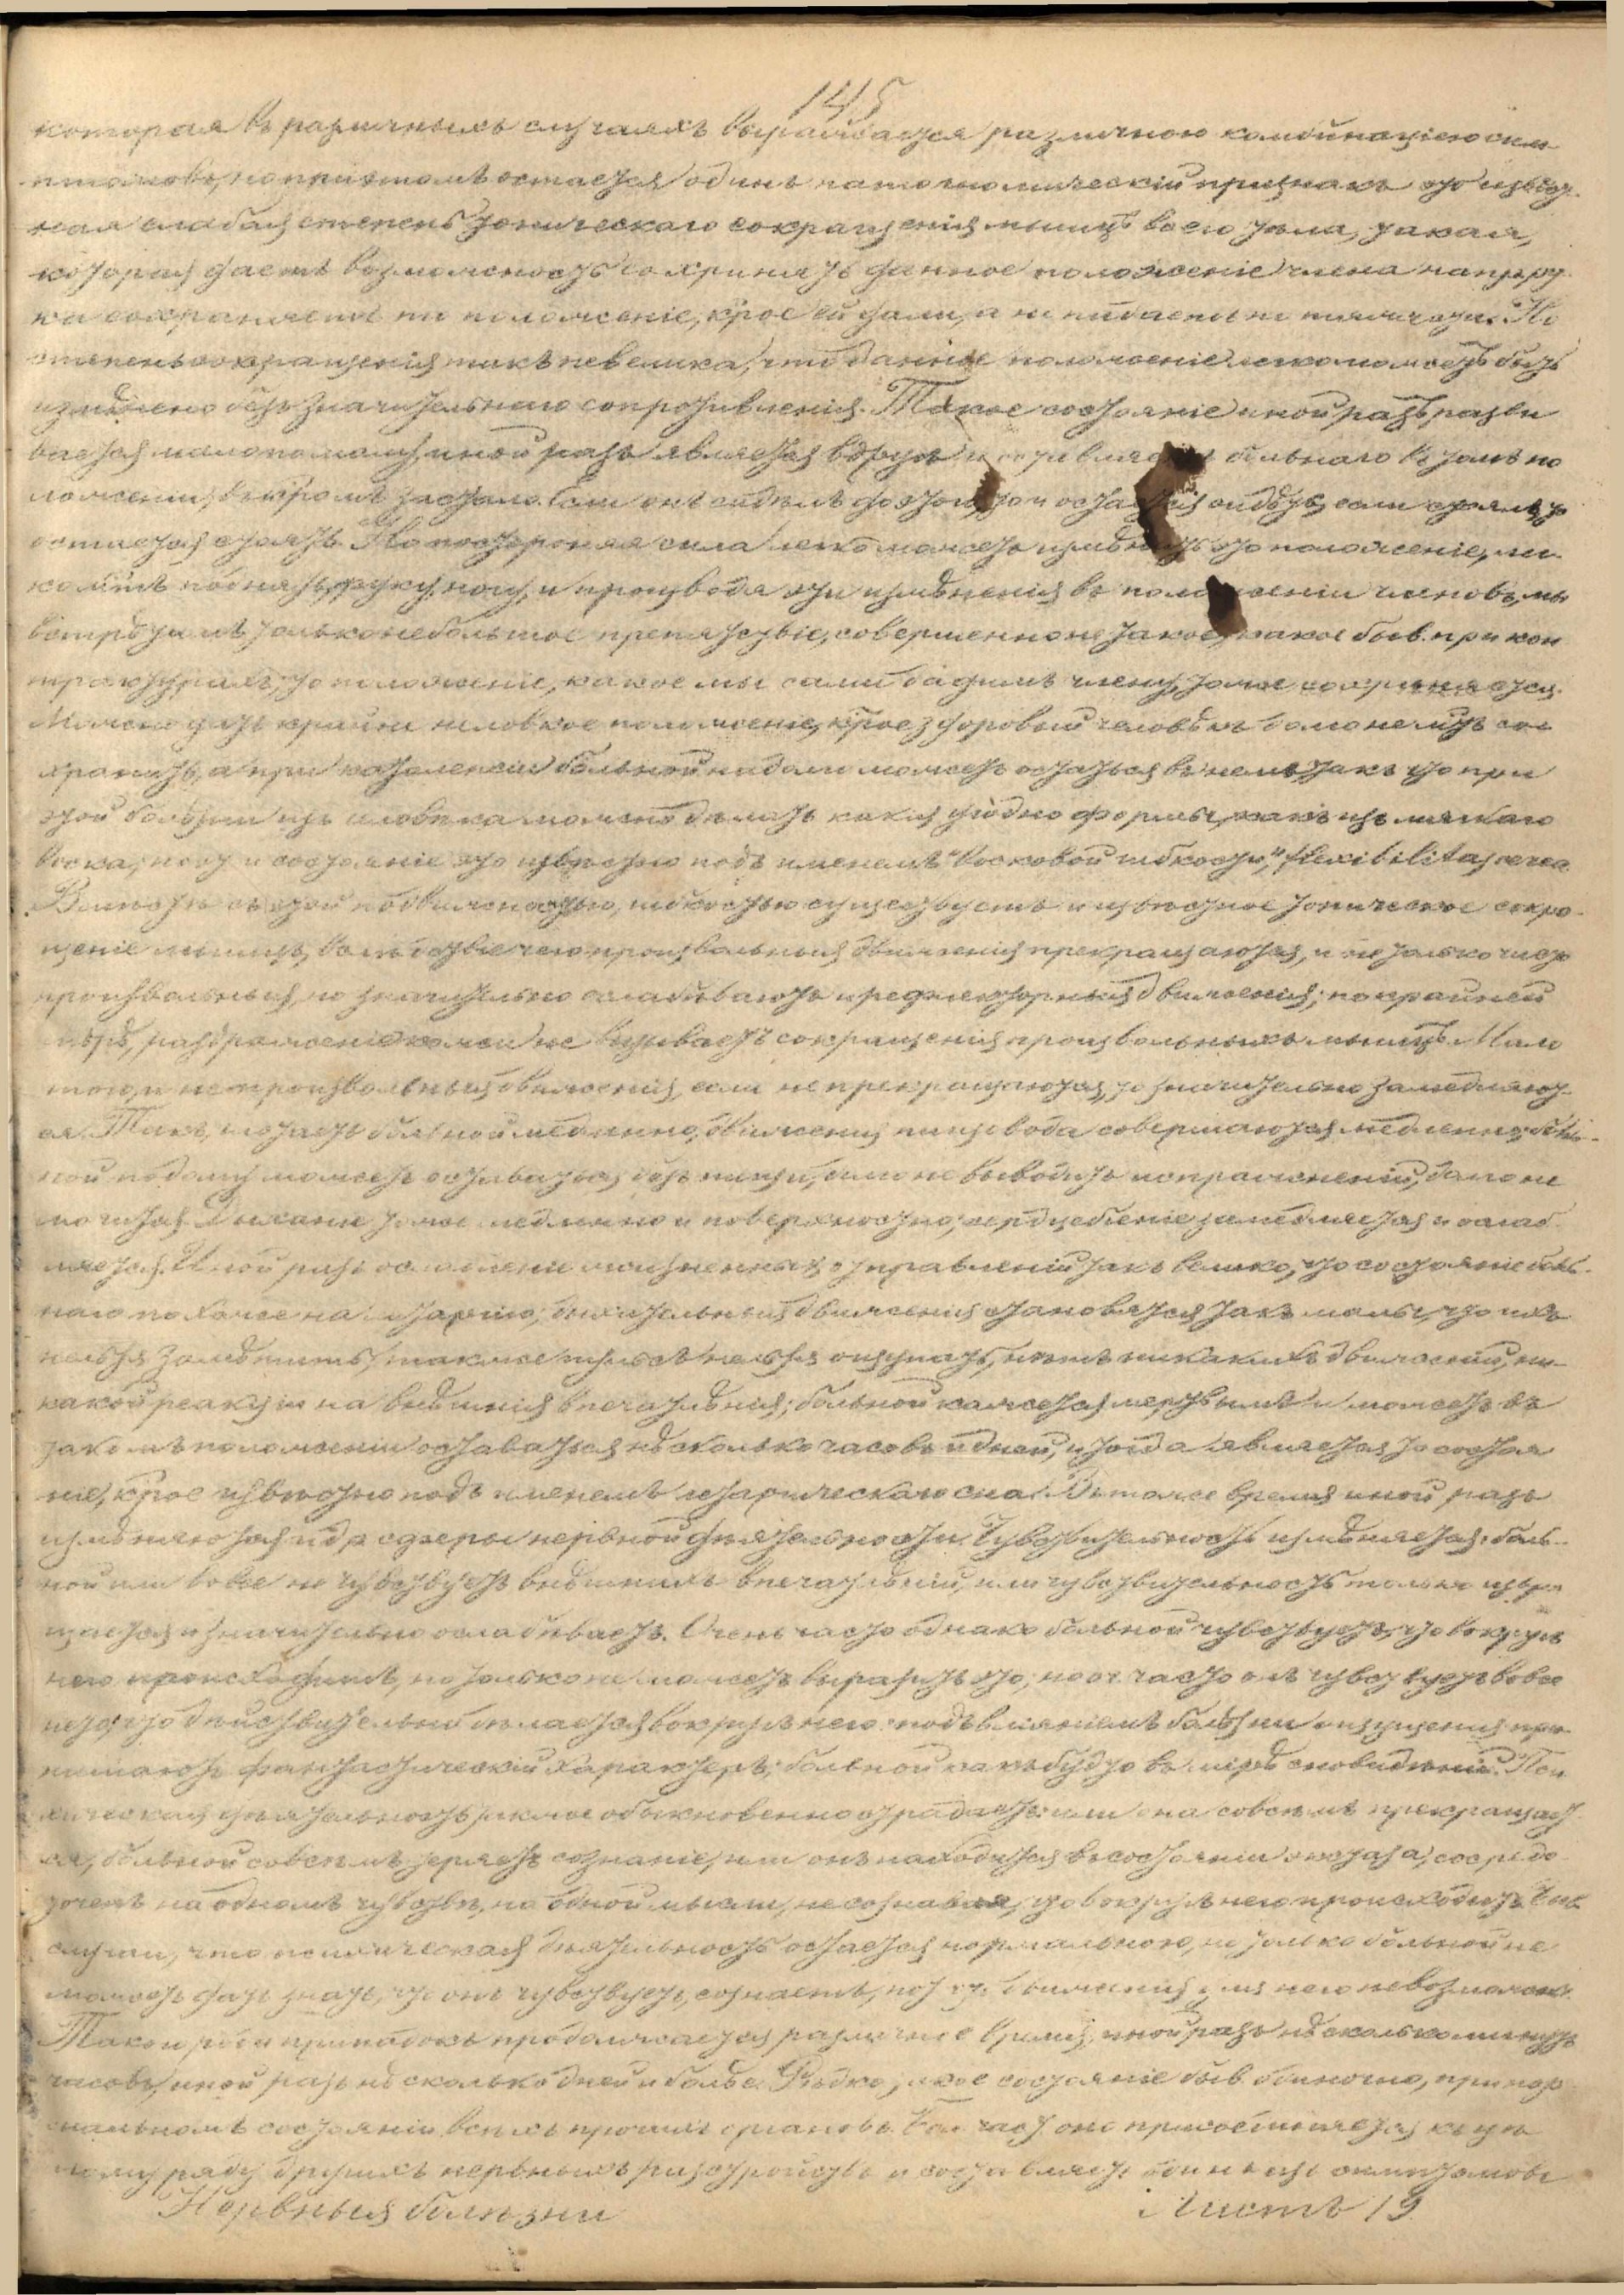 145
которая въ различныхъ случаяхъ выражается различною комбинаціею сим-
птомовъ, но при этомъ остается одинъ патогномическій признакъ это извѣст-
ная слабая степень тоническаго сокращенія мышцъ всего тѣла, такая,
которая даетъ возможность сохранять данное положеніе члена напр. ру-
ка сохраняетъ то положеніе, крое ей дали, а не падаетъ по тяжести. Но
степень сокращенія такъ невелика, что данное положеніе легко можетъ быть
измѣнено безъ значительнаго сопротивленія. Такое состояніе иной разъ разви
вается мало по малу, иной разъ является вдругъ и оставляетъ больнаго въ томъ по
ложеніи, въ кромъ застало. Если онъ сидѣлъ до этого, то и остается сидѣть, если стоялъ, то
остается стоять. Но посторонняя сила легко можетъ измѣнить это положеніе, мы
можемъ поднять руку, ногу, и производя эти измѣненія въ положеніи членовъ, мы
встрѣтимъ только небольшое препятствіе, совершенно не такое, какое быв. при кон
трактурахъ; то положеніе, какое мы сами дадимъ члену, тоже сохраняется.
Можно дать крайне неловкое положеніе, крое здоровый человѣкъ долго не мож. со
хранить, а при каталепсіи больной надолго можетъ остаться въ немъ, такъ что при
этой болѣзни изъ человѣка можно дѣлать какія угодно формы, какъ изъ мягкаго
воска, поэт. и состояніе это извѣстно подъ именемъ "восковой гибкости," flexibilitas cerea.
Вмѣстѣ съ этой подвижностью, гибкостью существуетъ и извѣстное тоническое сокра-
щеніе мышцъ, вслѣдствіе чего произвольныя движенія прекращаются, и не только чисто
произвольныя, но значительно ослабѣваютъ и рефлекторныя движенія; по крайней
мѣрѣ, раздраженіе кожи не вызываетъ сокращенія произвольныхъ мышцъ. Мало
того, и непроизвольныя движенія, если не прекращаются, то значительно замедляют-
ся. Такъ, глотаетъ больной медленно, движенія пищевода совершаются медленно; боль-
ной подолгу можетъ оставаться безъ пищи, или не выводитъ испражненій, долго не
мочится. Дыханіе тоже медленно и поверхностно; сердцебіеніе замедляется и ослаб-
ляется. Иной разъ ослабленіе жизненныхъ отправленій такъ велико, что состояніе боль-
наго похоже на летаргію; дыхательныя движенія становятся такъ малы, что ихъ
нельзя замѣтить, также пульсъ нельзя ощущать, нѣтъ никакихъ движеній, ни-
какой реакціи на внѣшнія впечатлѣнія; больной кажется мертвымъ и можетъ въ
такомъ положеніи оставаться нѣсколько часовъ и дней, и тогда является то состоя
ніе, крое извѣстно подъ именемъ летаргическаго сна. Въ тоже время иной разъ
измѣняются и др. сферы нервной дѣятельности. Чувствительность измѣняется: боль-
ной или вовсе не чувствуетъ внѣшнихъ впечатлѣній, или чувствительность только извра
щается и значительно ослабѣваетъ. Очень часто однако больной чувствуетъ, что вокругъ
него происходитъ, но только не можетъ выразить это; но оч. часто онъ чувствуетъ вовсе
не то, что дѣйствительно дѣлается вокругъ него: подъ вліяніемъ болѣзни ощущенія при-
нимаютъ фантастическій характеръ; больной какъ будто въ мірѣ сновидѣній. Пси
хическая дѣятельность также обыкновенно страдаетъ: или она совсѣмъ прекращает-
ся, больной совсѣмъ теряетъ сознаніе, или онъ находится въ состояніи экстаза, сосредо
точенъ на одномъ чувствѣ, на одной мысли, не сознавая, что вокругъ него происходитъ. Быв.
случаи, что психическая дѣятельность остается нормальною, но только больной не
можетъ дать знать, что онъ чувствуетъ, сознаетъ, пот. что движенія для него невозможны.
Такого рода припадокъ продолжается различное время, иной разъ нѣсколько минутъ,
часовъ, иной разъ нѣсколько дней и болѣе. Рѣдко такое состояніе быв. одиночно, при нор
мальномъ состояніи всѣхъ прочихъ органовъ. Бол. част. оно присоединяется къ цѣ
лому ряду другихъ нервныхъ разстройствъ и составляетъ одинъ изъ симптомовъ
Нервныя болѣзни Листъ 19